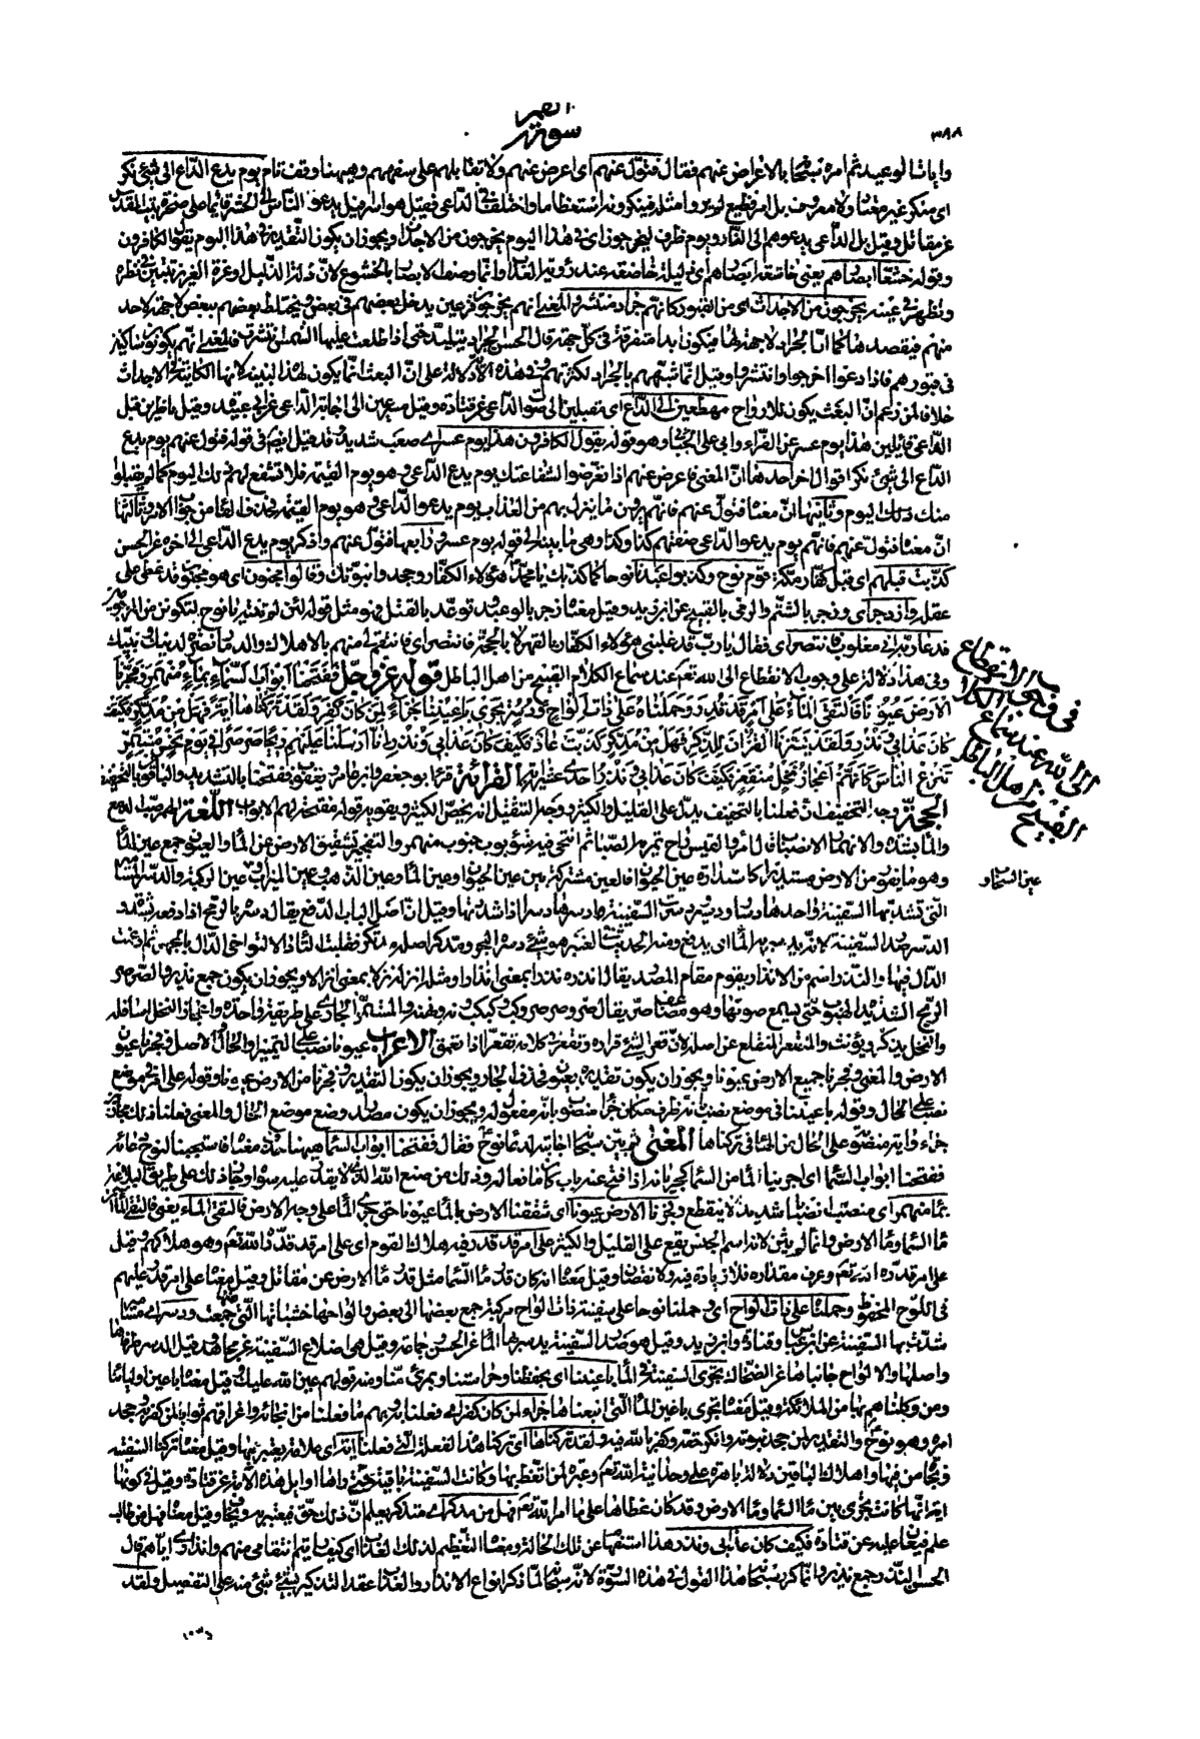 ٣٨٨
سورة القمر
وايات الوعيد ثم امره سبحانه بالاعراض عنهم فقال فتول عنهم اى اعرض عنهم ولا تقابلهم على سفههم وهيهنا وقف تام يوم يدع الداع الى شئ نكر
اى منكر غير معتاد ولا معروف بل امر فظيع لم يروا مثله فينكرونه استعظاما واختلف فى الداعى فقيل هو اسرافيل يدعو الناس الى الحشر قائما على صخرة بيت المقدس
عن مقاتل وقيل بل الداعى يدعوهم الى النار ويوم ظرف ليخرجون اى فى هذا اليوم يخرجون من الاجداث ويجوز ان يكون التقدير فى هذا اليوم يقول الكافرون
وقوله خشعا ابصارهم يعنى خاشعة ابصارهم اى ذليلة خاضعة عند رؤية العذاب وانما وصف الابصار بالخشوع لان ذلة الذليل وعزة العزيز تتبين فى نظره
وتظهر فى عينه يخرجون من الاجداث اى من القبور كانهم جراد منتشر والمعنى انهم يخرجون فزعين يدخل بعضهم فى بعض ويختلط بعضهم ببعض لا جهة لاحد
منهم فيقصدها كما ان الجراد لا جهة لها فيكون ابدا متفرقة فى كل جهة قال الحسن الجراد يتلبد حتى اذا طلعت عليها الشمس انتشرت فالمعنى انهم يكونون ساكنين
فى قبورهم فاذا دعوا اخرجوا وانتشروا وقيل انما شبههم بالجراد لكثرتهم وفى هذه الاية دلالة على ان البعث انما يكون لهذا البنية لانها الكائنة فى الاجداث
خلافا لمن زعم ان البعث يكون للارواح مهطعين الى الداع اى مقبلين الى صوت الداعى عن قتادة وقيل مسرعين الى اجابة الداعى عن ابى عبيدة وقيل ناظرين قبل
الداعى قائلين هذا يوم عسر عن الفراء وابى على الجبائى وهو قوله يقول الكافرون هذا يوم عسر اى صعب شديد وقد قيل ايضا فى قوله فتول عنهم يوم يدع
الداع الى شئ نكر اقوال اخر احدها ان المعنى فاعرض عنهم اذا تعرضوا لشفاعتك يوم يدع الداعى وهو يوم القيمة فلا تشفع لهم ذلك اليوم كما لم يقبلوا
منك ذلك اليوم وثانيها ان معناه فتول عنهم فانهم يرون ما ينزل بهم من العذاب يوم يدعو الداعى وهو يوم القيمة فحذف الفاء من جواب الامر وثالثها
ان معناه فتول عنهم فانهم يوم يدعو الداعى صفتهم كذا وكذا وهى ما بينه الى قوله يوم عسر ورابعها فتول عنهم واذكر يوم يدع الداعى الى اخره عن الحسن
كذبت قبلهم اى قبل كفار مكة قوم نوح فكذبوا عبدنا نوحا كما كذبك يا محمد هؤلاء الكفار وجحدوا نبوتك وقالوا مجنون اى هو مجنون قد غطى على
عقله وازدجر اى وزجر بالشتم والرمى بالقبيح عن ابن زيد وقيل معناه زجر بالوعيد وتوعد بالقتل فهو مثل قوله لئن لم تنته يا نوح لتكونن من المرجومين
فدعا ربه انى مغلوب فانتصر اى فقال يا رب قد غلبنى هؤلاء الكفار بالقهر لا بالحجة فانتصر اى فانتقم لى منهم بالاهلاك والدمار نصرة لدينك ونبيك
وفى هذا دلالة على وجوب الانقطاع الى الله تعم عند سماع الكلام القبيح من اهل الباطل قوله عز وجل ففتحنا ابواب السماء بماء منهمر وفجرنا
الارض عيونا فالتقى الماء على امر قد قدر وحملناه على ذات الواح ودسر تجرى باعيننا جزاء لمن كان كفر ولقد تركناها اية فهل من مدكر فكيف
كان عذابى ونذر ولقد يسرنا القران للذكر فهل من مدكر كذبت عاد فكيف كان عذابى ونذر انا ارسلنا عليهم ريحا صرصرا فى يوم نحس مستمر
تنزع الناس كانهم اعجاز نخل منقعر فكيف كان عذابى ونذر القرائة قرا ابو جعفر وابن عامر ويعقوب ففتحنا بالتشديد والباقون بالتخفيف
الحجة وجه التخفيف ان فعلنا بالتخفيف يدل على القليل والكثير ووجه التثقيل انه يخص الكثير ويقويه قوله مفتحة لهم الابواب اللغة الهمر صب الدمع
والماء بشدة والانهمار الانصباب قال امرؤ القيس راح تمريه الصبا ثم انتحى فيه شؤبوب جنوب منهمر والتفجير تشقيق الارض عن الماء والعيون جمع عين الماء
وهو ما يفور من الارض مستديرا كاستدارة عين الحيوان فالعين مشتركة بين عين الحيوان وعين الماء وعين الذهب وعين الميزان وعين الركية والدسر المسامير
التى تشد بها السفينة واحدها دسار ودسير ودسرت السفينة ادسرها دسرا اذا شددتها وقيل ان اصل الباب الدفع يقال دسره بالرمح اذا دفعه بشدة
الدال فيها والنذر اسم من الانذار يقوم مقام المصدر يقال انذره نذرا بمعنى انذارا ومثله انزله نزلا بمعنى انزالا ويجوز ان يكون جمع نذير والصرصر
الريح الشديدة الهبوب حتى يسمع صوتها وهو مضاعف صر يقال صر وصرصر وكب وكبكب ونه ونهنه والمستمر الجارى على طريقة واحدة واعجاز النخل اسافله
والنخل يذكر ويؤنث والمنقعر المنقلع عن اصله لان قعر الشئ قراره وتقعر فى كلامه تقعرا اذا تعمق الاعراب عيونا نصب على التمييز او الحال والاصل وفجرنا عيون
الارض والمعنى وفجرنا جميع الارض عيونا ويجوز ان يكون تقديره بعيون فحذف الجار ويجوز ان يكون التقدير وفجرنا من الارض عيونا وقوله على امر فى موضع
نصب على الحال وقوله باعيننا فى موضع نصب بانه ظرف مكان جزاء منصوب بانه مفعول له ويجوز ان يكون مصدرا وضع موضع الحال والمعنى فعلنا ذلك مجازين
جزاء واية منصوب على الحال من الهاء فى تركناها المعنى ثم بين سبحانه اجابته لدعاء نوح فقال ففتحنا ابواب السماء هيهنا حذف معناه فاستجبنا لنوح دعائه
ففتحنا ابواب السماء اى اجرينا الماء من السماء كجريانه اذا فتح عنه باب كان مانعا له وذلك من صنع الله الذى لا يقدر عليه سواه وجاز ذلك على طريق البلاغة
بماء منهمر اى منصب انصبابا شديدا لا ينقطع وفجرنا الارض عيونا اى شققنا الارض بالماء عيونا حتى جرى الماء على وجه الارض فالتقى الماء يعنى فالتقى الماءان
ماء السماء وماء الارض وانما لم يثن لانه اسم الجنس يقع على القليل والكثير على امر قد قدر فيه هلاك القوم اى على امر قد قدره الله تعم وهو هلاكهم وقيل
على امر قدره الله تعم وعرف مقداره فلا زيادة فيه ولا نقصان وقيل معناه انه كان قدر ماء السماء مثل قدر ماء الارض عن مقاتل وقيل معناه على امر قدر عليهم
فى اللوح المحفوظ وحملناه على ذات الواح اى وحملنا نوحا على سفينة ذات الواح مركبة جمع بعضها الى بعض والواحها خشباتها التى منها جمعت ودسر اى مسامير
شدت بها السفينة عن ابن عباس وقتادة وابن زيد وقيل هو صدر السفينة يدسر بها الماء عن الحسن وجماعة وقيل هى اضلاع السفينة عن مجاهد وقيل الدسر طرفاها
واصلها والالواح جانباها عن الضحاك تجرى السفينة فى الماء باعيننا اى بحفظنا وحراستنا وبمرئ منا ومنه قولهم عين الله عليك وقيل معناه باعين اوليائنا
ومن وكلناهم بها من الملائكة وقيل معناه تجرى باعين الماء التى انبعناها جزاء لمن كان كفر اى فعلنا به وبهم ما فعلنا من انجائه واغراقهم ثوابا لمن كفر به وجحد
امره وهو نوح والتقدير لمن جحد نبوته وانكر حقه وكفر بالله فيه ولقد تركناها اى تركنا هذه الفعلة التى فعلناها اية اى علامة يعتبر بها وقيل معناه تركنا السفينة
ونجاة من فيها واهلاك الباقين دلالة باهرة على وحدانية الله تعم وعبرة لمن اتعظ بها وكانت السفينة باقية حتى راها اوايل هذه الامة عن قتادة وقيل فى كونها
اية انها كانت تجرى بين ماء السماء وماء الارض وقد كان غطاها على ما امر الله تعم فهل من مدكر اى متذكر يعلم ان ذلك حق فيعتبر به ويخاف وقيل معناه فهل من طالب
علم فيعان عليه عن قتادة فكيف كان عذابى ونذر هذا استفهام عن تلك الحالة ومعناه التعظيم لذلك العذاب اى كيف رايتم انتقامى منهم وانذارى اياهم قال
الحسن النذر جمع نذير وانما كرر سبحانه هذا القول فى هذه السورة لانه سبحانه لما ذكر انواع الانذار والعذاب عقد التذكير بشئ شئ منه على التفصيل ولقد
فى وجوب الانقطاع
الى الله عند سماع الكلام
القبيح من اهل الباطل